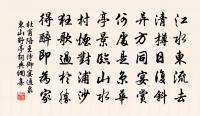 江水東流去
清樽日復斜
异方同宴賞
何處是京華
亭景臨山水
村煙對浦沙
狂歌過於勝
得醉即為家
杜甫陪王侍御宴通泉
東山野亭詞典網書